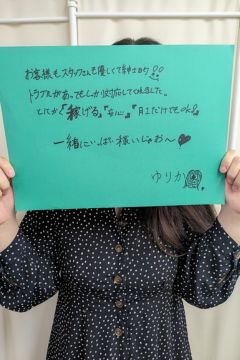 お客様もスタッフさんも優しくて紳士的!!
トラブルがあってもしっかり対応してくれました。
とにかく『稼げる』『安心』『月1だけでもOK』
一緒にいっぱい稼いじゃお〜♥
ゆりか